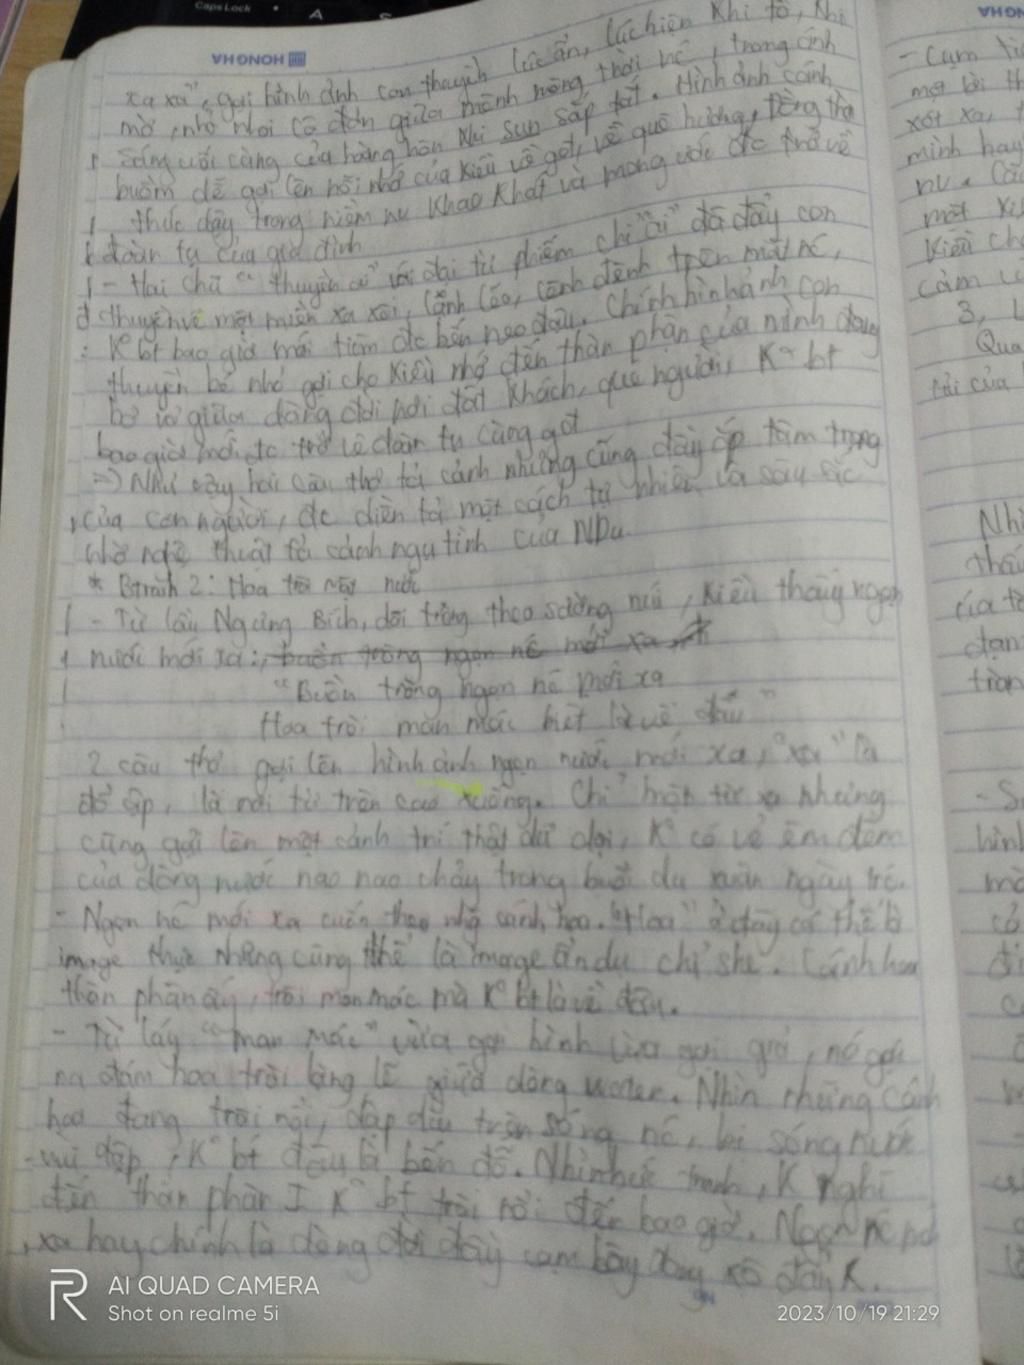 Caps Lock
A
S
HONGHA
xa xa", gợi hình ảnh con thuyền lúc ẩn, lúc hiện khi tỏ, khi
mờ, nhỏ nhoi cô đơn giữa mênh mông thời nc, trong ánh
sáng cuối cùng của hoàng hôn khi sụp sắp tắt. Hình ảnh cánh
buồm dễ gợi lên nỗi nhớ của Kiều về gđ, về quê hương, đồng thời
thức dậy trong niềm nv khao khát và mong ước đc trở về
đoàn tụ của gia đình
- Hai chữ "thuyền ai" với đại từ phiếm chỉ "ai" đã đẩy con
thuyền về một miền xa xôi, lạnh lẽo, lênh đênh trên mặt nc,
K° bt bao giờ mới tìm đc bến neo đậu. Chính hình ảnh con
thuyền bé nhỏ gợi cho Kiều nhớ đến thân phận của mình đang
bơ vơ giữa dòng đời nơi đất khách, quê người, K° bt
bao giờ mới đc trở về đoàn tụ cùng gđ
=> Như vậy hai câu thơ tả cảnh nhưng cũng đầy ắp tâm trạng
của con người, đc diễn tả một cách tự nhiên và sâu sắc
nhờ nghệ thuật tả cảnh ngụ tình của NDu.
* Btranh 2: Hoa trôi mặt nước
- Từ lầu Ngưng Bích, dõi trông theo sường núi, Kiều thấy ngọn
nước mới xa: buồn trông ngọn nc mới xa
"Buồn trông ngọn nc mới xa
Hoa trôi man mác biết là về đâu"
2 câu thơ gợi lên hình ảnh ngọn nước mới xa, "xa" là
đổ ập, là nơi từ trên cao xuống. Chỉ một từ xa nhưng
cũng gợi lên một cảnh trí thật dữ dội, K° có vẻ êm đềm
của dòng nước nao nao chảy trong buổi du xuân ngày trc.
- Ngọn nc mới xa cuốn theo nhg cánh hoa. "Hoa" ở đây có thể là
image thực nhưng cũng thể là image ẩn dụ chỉ she. Cánh hoa
thân phận ấy, trôi man mác mà K° bt là về đâu.
- Từ láy "man mác" vừa gợi hình vừa gợi giá, nó gợi
ra đám hoa trôi lặng lẽ giữa dòng water. Nhìn những cánh
hoa đang trôi nổi, dập dìu trên sóng nc, bị sóng nước
vùi dập, K° bt đâu là bến đỗ. Nhìn bức tranh, K nghĩ
đến thân phận I K° bt trôi nổi đến bao giờ. Ngọn nc mới
xa hay chính là dòng đời đầy cạm bẫy đang xô đẩy K.
- Cụm từ
một lời th
xót xa, t
mình hay
nv. Câu
một ki
Kiều ch
cảm v
3, L
Qua
tài của
Nhì
thấ
của t
dạn
tràn
- S
hình
mà
có
đi
AI QUAD CAMERA
Shot on realme 5i
2023/10/19 21:29